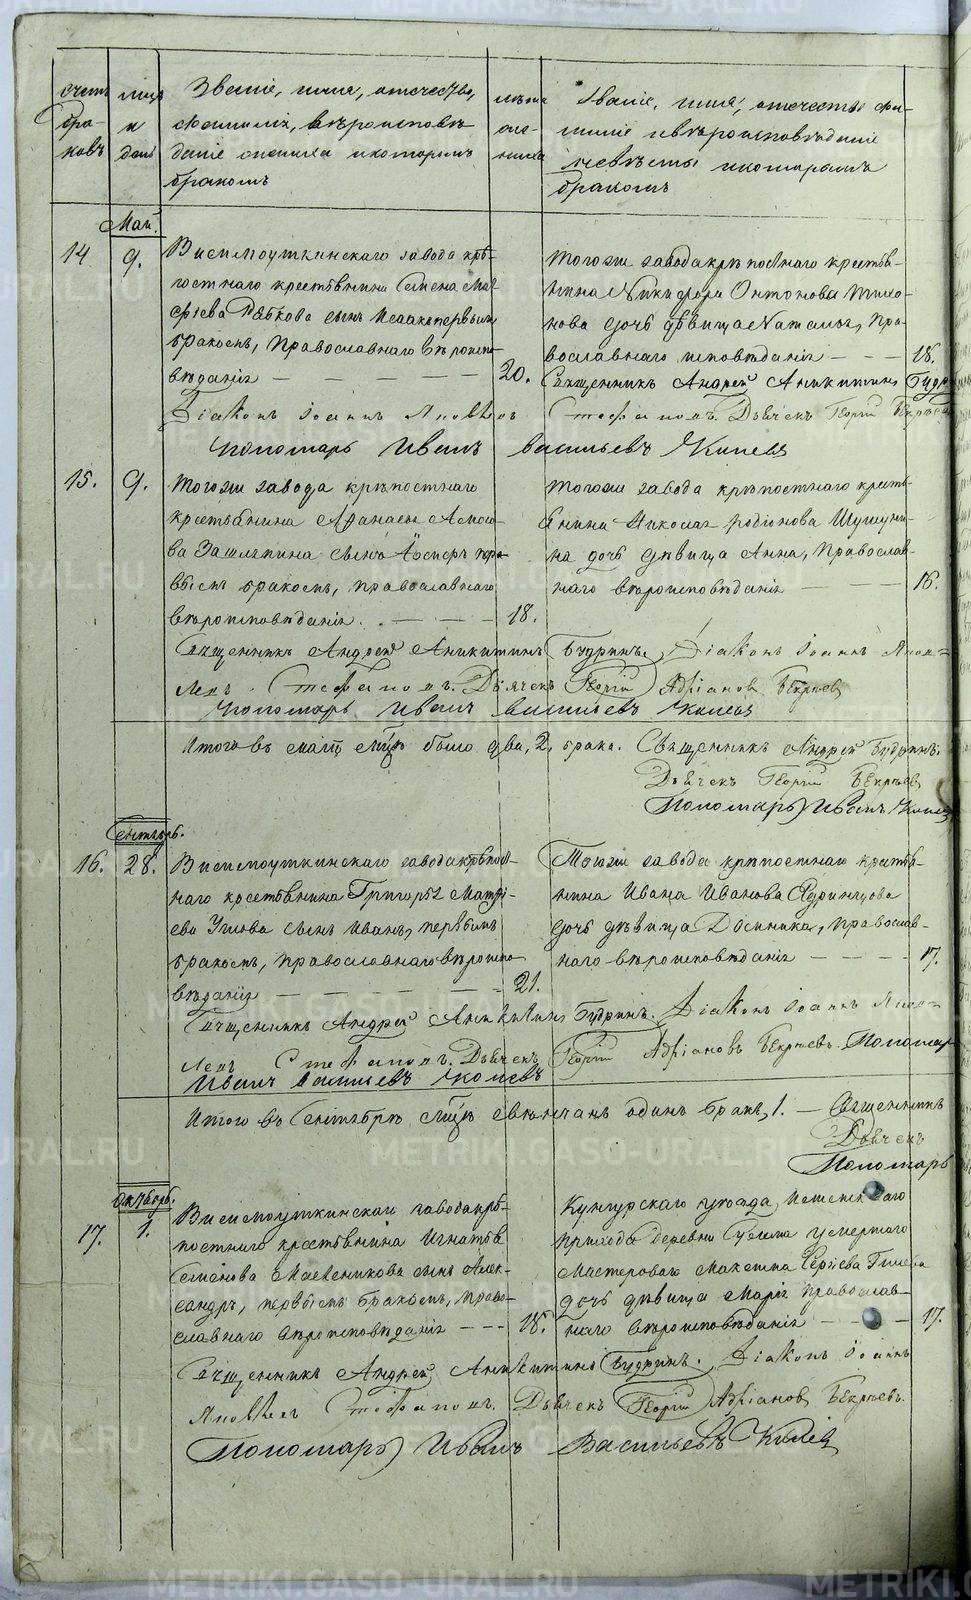 счетъ бра-ковъ
мѣцъ и день
Званіе, имя, отечество,
фамилія, вѣроисповѣ-
даніе жениха и которымъ
бракомъ
лѣта же-ниха
Званіе, имя, отечество фа-
милія и вѣроисповѣданіе
невѣсты и которымъ
бракомъ
Май.
14 9.
Висимоуткинскаго завода крѣ-
постнаго крестьянина Семена Мат-
фіева Рябкова сынъ Исаакъ первымъ
бракомъ, Православнаго вѣроиспо-
вѣданія — — — — — 20.
тогоже завода крѣпостнаго крестья-
нина Никифора Онтонова Тихо-
нова дочь дѣвица Наталья, Пра-
вославнаго исповѣданія — — — 18.
Священникъ Андрей Аникитинъ Будр
Діаконъ Іоаннъ Яковлевъ Стефановъ. Дьячекъ Георгій Бекрѣев
Пономарь Иванъ Васильевъ
15. 9.
Тогоже завода крѣпостнаго
крестьянина Афанасія
сынъ Іосифъ пер-
вымъ бракомъ, православнаго
вѣроисповѣданія. — — — — 18.
тогоже завода крѣпостнаго кресть-
янина Николая Родіонова
дочь дѣвица Анна, Православ-
наго вѣроисповѣданія — — — 16.
Священникъ Андрей Аникитинъ Будринъ. Діаконъ Іоаннъ Яков-
левъ Стефановъ. Дьячекъ Георгій Адріановъ Бекрѣевъ
Пономарь Иванъ Васильевъ
Итого въ маіѣ мѣцѣ было два, 2, брака. Священникъ Андрей Будринъ.
Дьячекъ Георгій Бекрѣевъ
Пономарь Иванъ
Сентябрь.
16. 28.
Висимоуткинскаго завода крѣпост-
наго крестьянина Григорья Матфі-
ева сынъ Иванъ, первымъ
бракомъ, православнаго вѣроиспо-
вѣданія — — — — — 21.
Тогоже завода крѣпостнаго крестья-
нина Ивана Иванова
дочь дѣвица Домника, православ-
наго вѣроисповѣданія — — — — 17.
Священникъ Андрей Аникитинъ Будринъ. Діаконъ Іоаннъ Яков-
левъ Стефановъ. Дьячекъ Георгій Адріановъ Бекрѣевъ. Пономарь
Иванъ Васильевъ
Итого въ Сентябрѣ мѣцѣ свѣнчанъ одинъ бракъ, 1. — Священникъ
Дьячекъ
Пономарь
Октябрь.
17. 1.
Висимоуткинскаго завода крѣ-
постнаго крестьянина Игнатья
Семенова сынъ Алек-
сандръ, первымъ бракомъ, Право-
славнаго вѣроисповѣданія — — — 18.
Кунгурскаго уѣзда,
прихода деревни умершаго
Мастероваго Максима Сергіева
дочь дѣвица Марія Православ-
наго вѣроисповѣданія — — — 17.
Священникъ Андрей Аникитинъ Будринъ. Діаконъ Іоаннъ
Яковлевъ Стефановъ. Дьячекъ Георгій Адріановъ Бекрѣевъ.
Пономарь Иванъ Васильевъ
METRIKI.GASO-URAL.RU